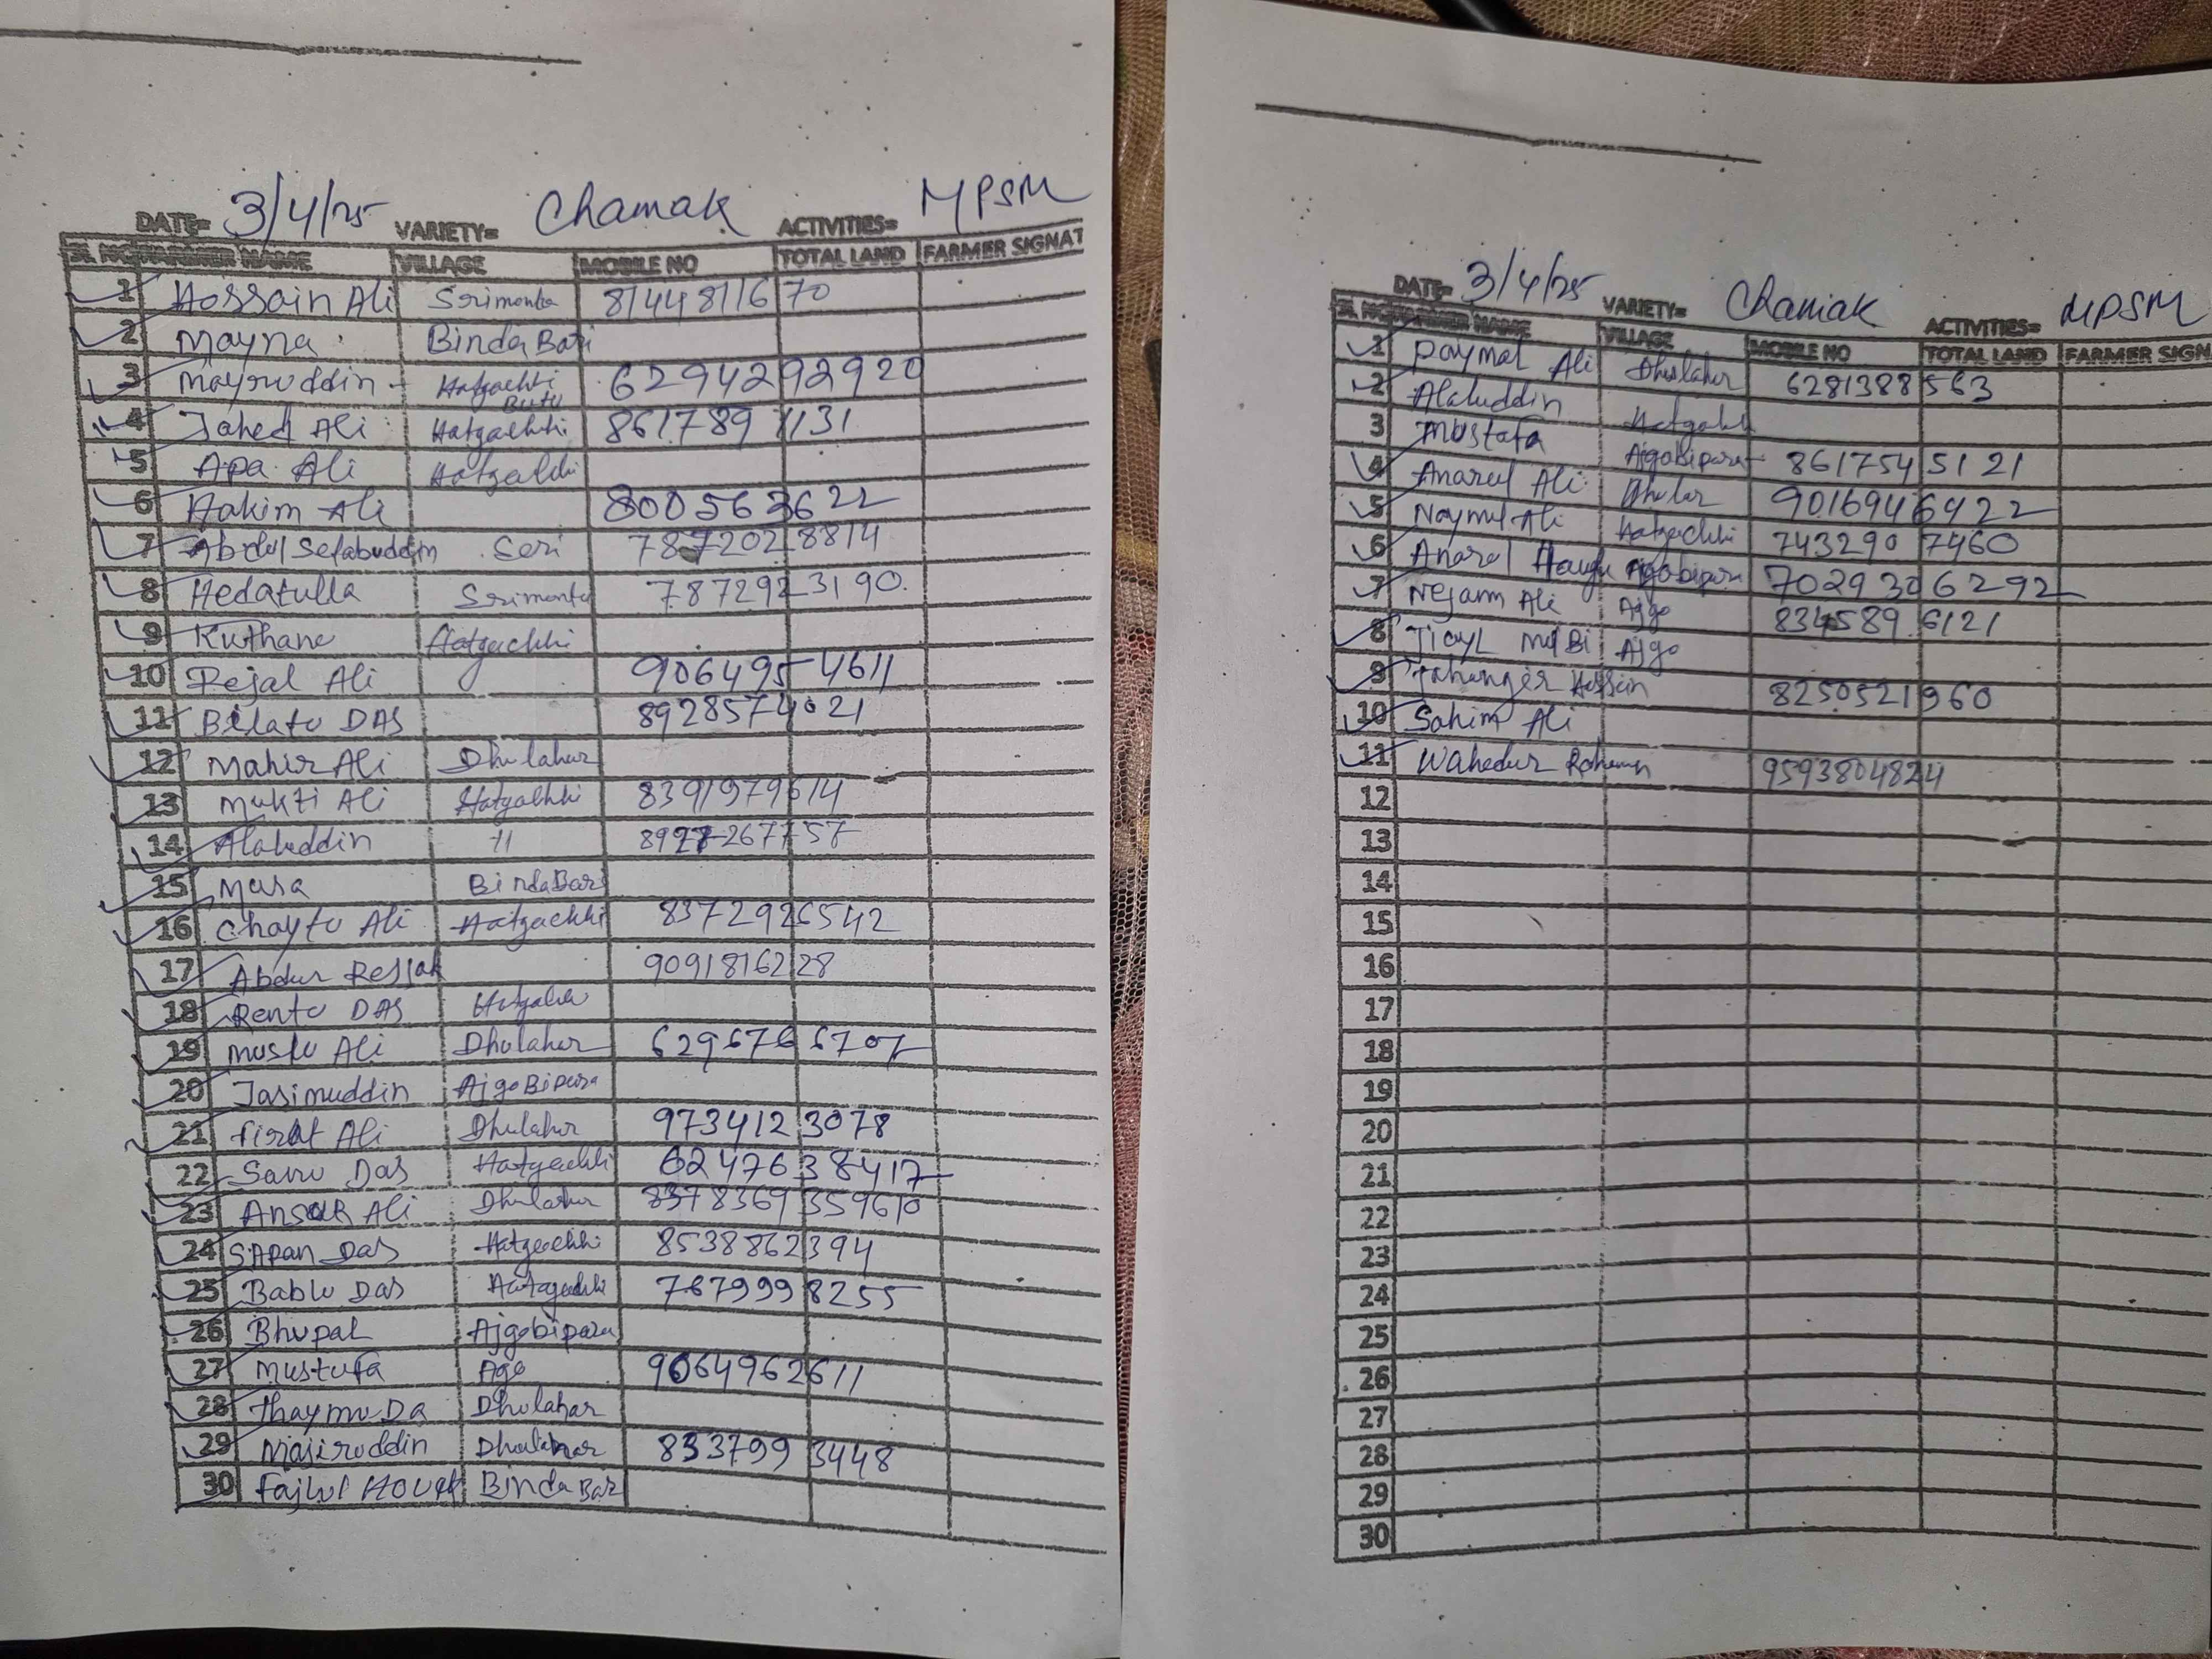 DATE= 3/4/25 VARIETY= Chamak ACTIVITIES= MPSM
Sl. NO FARMER NAME VILLAGE MOBILE NO TOTAL LAND FARMER SIGNAT
1 Hossain Ali Srimonta 8144811670
2 Mayna BindaBari
3 Mayruddin Hatgachhi 6294292920
4 Jahed Ali Hatgachhi 8617891131
5 Apa Ali Hatgachhi
6 Hakim Ali 800563622
7 Abdul Sefabuddin Seri 7872028814
8 Hedatulla Srimonta 7872923190.
9 Kuthane Hatgachhi
10 Rejal Ali 9064954611
11 Bilatu DAS 8928574021
12 Mahir Ali Dhulahar
13 Mukti Ali Hatgachhi 8391979614
14 Alaluddin 11 8927267757
15 Musa BindaBari
16 Chaytu Ali Hatgachhi 8372926542
17 Abdur Rejjak 9091816228
18 Rentu DAS
19 Muslu Ali Dhulahar 629676
20 Jasimuddin AjgoBipara
21 Ali Dhulahar 9734123078
22 Das Hatgachhi 6247638417
23 Ansar Ali Dhulahar 8378369359610
24 SAPAN DAS Hatgachhi 8538862394
25 Bablu DAS Hatgachhi 7679998255
26 Bhupal Ajgobipara
27 Mustufa Ago 9064962611
28 ThaymuDa Dhulahar
29 Majiruddin Dhulahar 8337993448
30 Fajlul Houqe BindaBar
DATE= 3/4/25 VARIETY= Chamak ACTIVITIES= MPSM
Sl. NO FARMER NAME VILLAGE MOBILE NO TOTAL LAND FARMER SIGN
1 Paymal Ali Dhulahar 6281388563
2 Alaluddin
3 Mustafa Ajgobipara 8617545121
4 Anarul Ali 9016946922
5 Naymul Ali Hatgachhi 7432907460
6 Anarol Ajgobipara 7029306292
7 Nejam Ali Ajgo 8345896121
8 Ajgo
9 Jahanger Hossein 8250521960
10 Sahim Ali
11 Wahedur Rohemn 9593804824
12
13
14
15
16
17
18
19
20
21
22
23
24
25
26
27
28
29
30